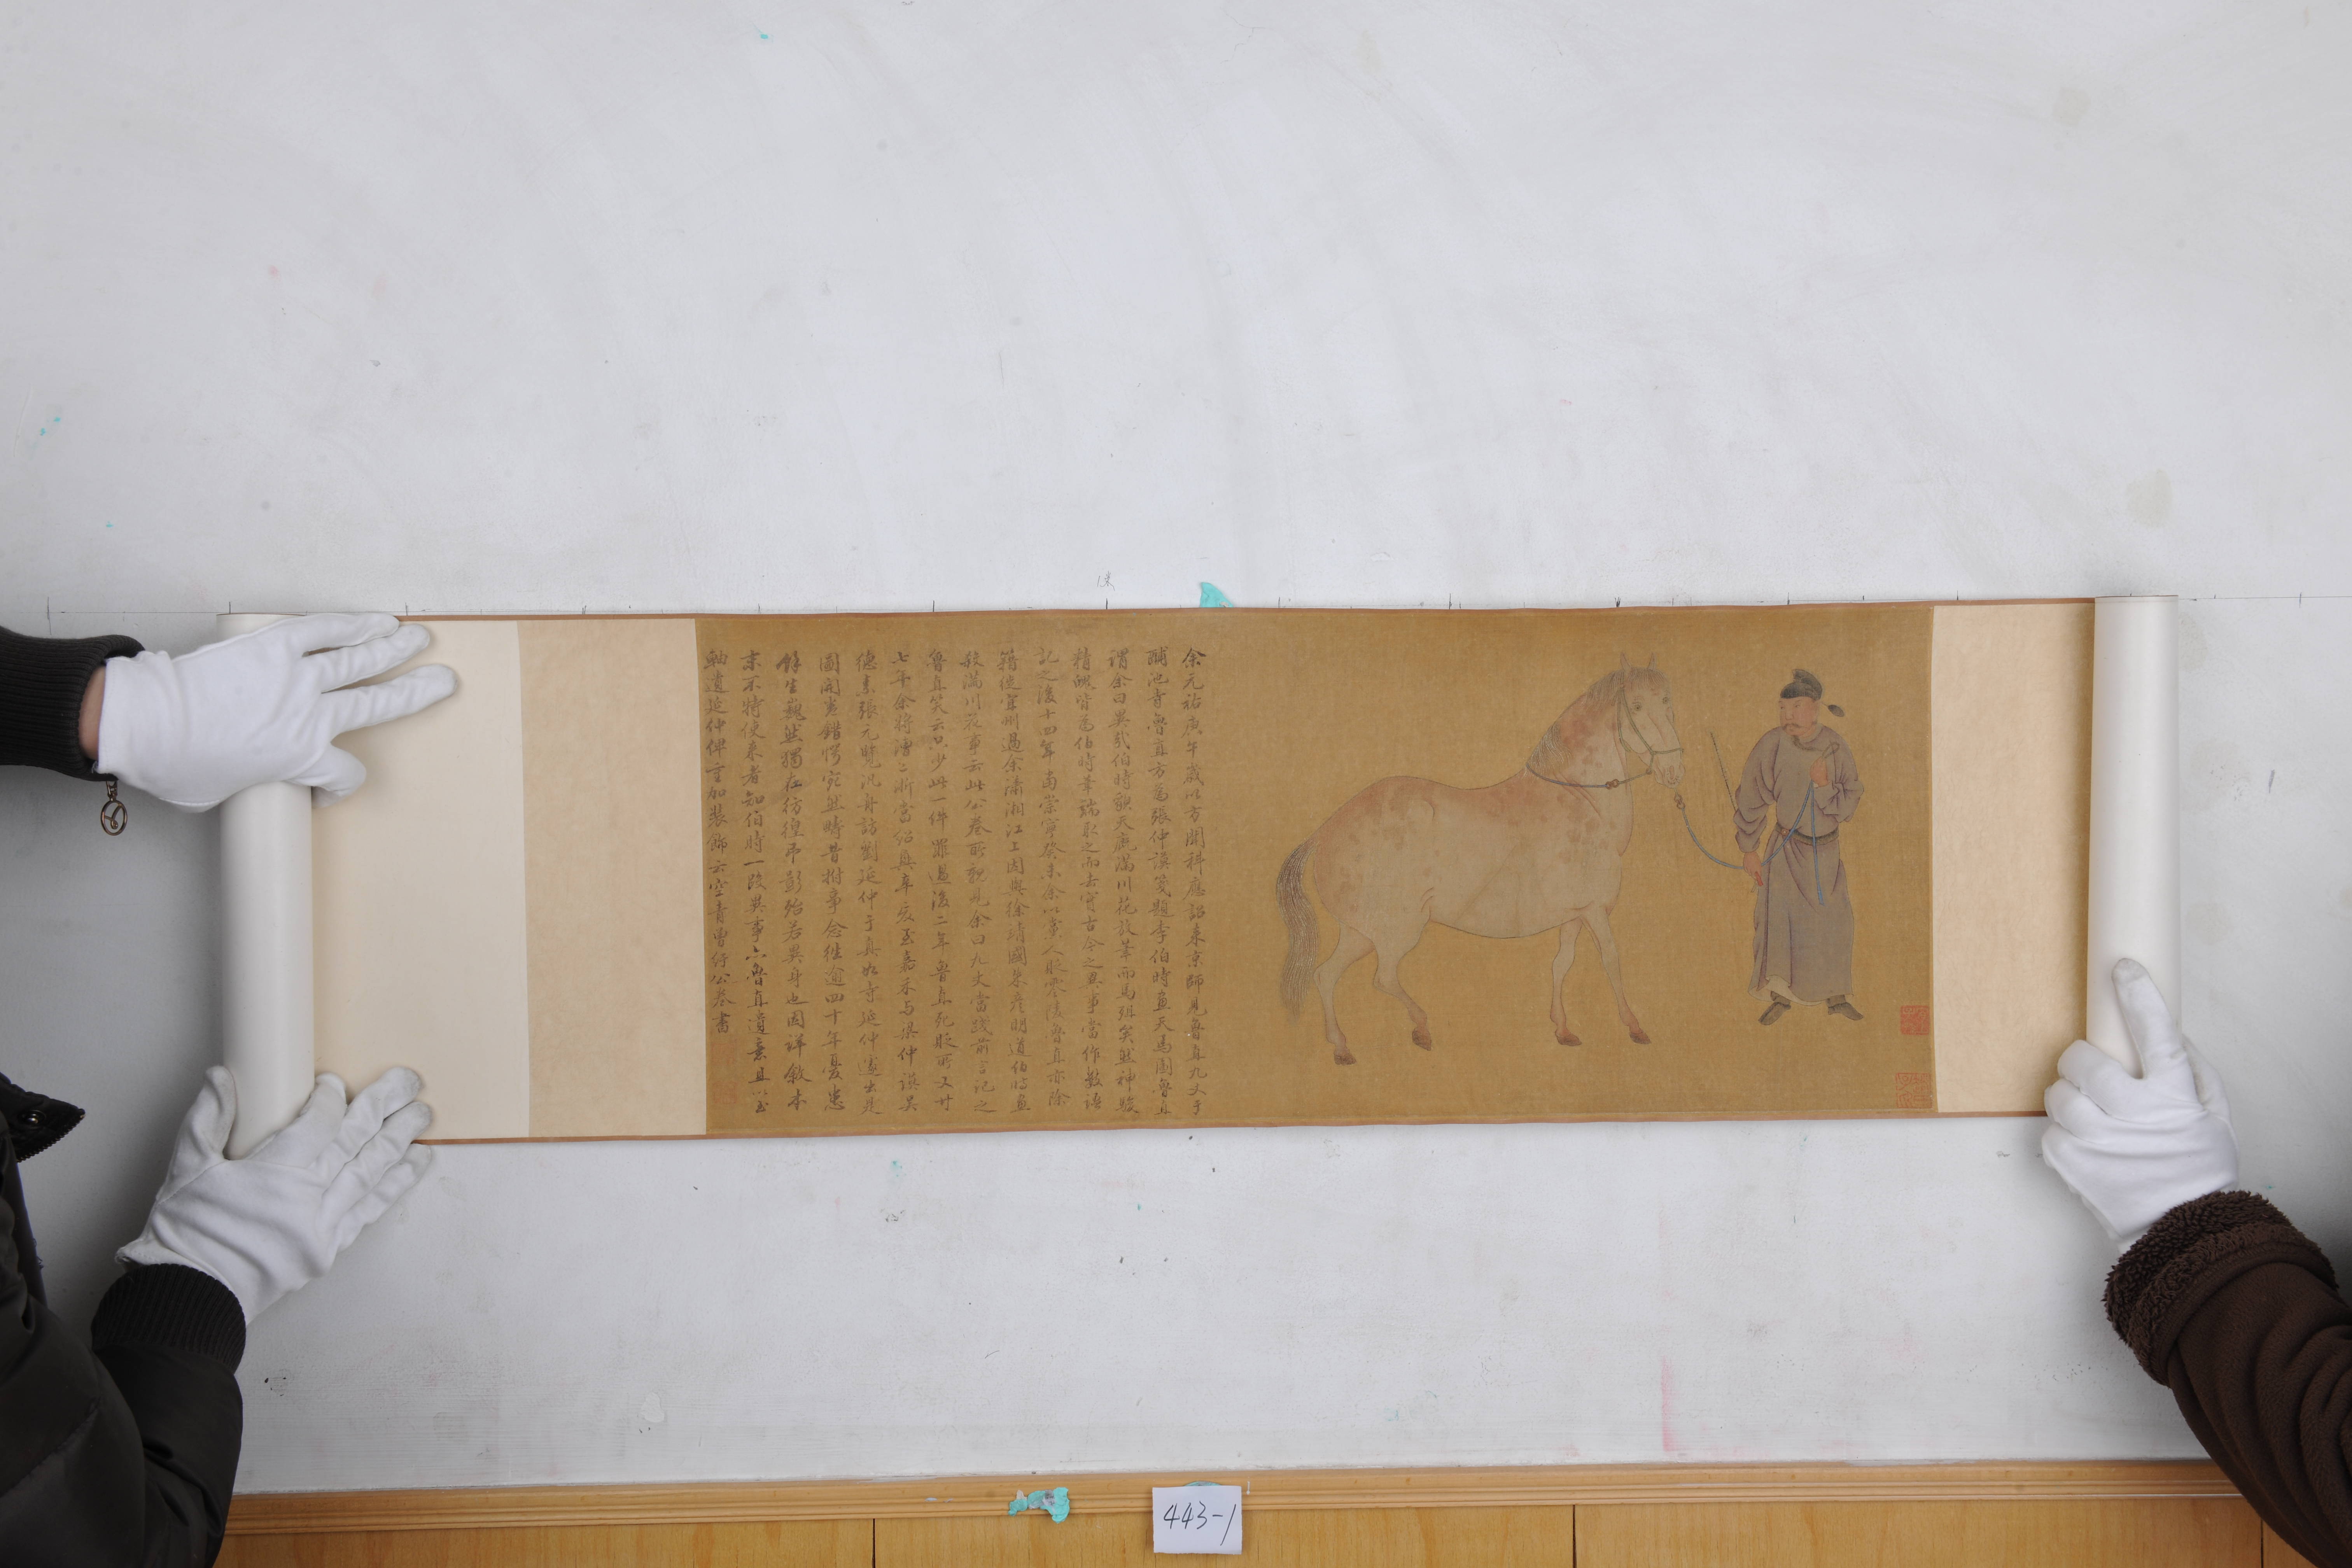 余元祐庚午歲以方聞科應詔来京師見魯直九丈于
酺池寺魯直方為張仲謨箋題李伯時畫天馬圖魯直
謂余曰異哉伯時貌天廐滿川花放筆而馬殂矣盖神駿
精魄皆為伯時筆端取之而去實古今之異事當作數語
記之後十四年當崇寧癸未余以黨人貶零陵魯直亦除
籍徙宜州過余瀟湘江上因與徐靖國朱彦明道伯時畫
殺滿川花事云此公卷所親見余曰九丈當踐前言記之
魯直笑云只少此一件罪過後二年魯直死貶所又廿
七年余將漕二浙當紹興辛亥至嘉禾与梁仲謨吴
德素張元覽汎舟訪劉延仲于真如寺延仲遽出是
圖開卷錯愕宛然疇昔拊事念往逾四十年憂患
餘生巍然獨在彷徨弔影殆若異身也因詳敘本
末不特使来者知伯時一段異事亦魯直遺意且以玉
軸遺延仲俾重加裝飾云空青曾紆公卷書
1米
443-1